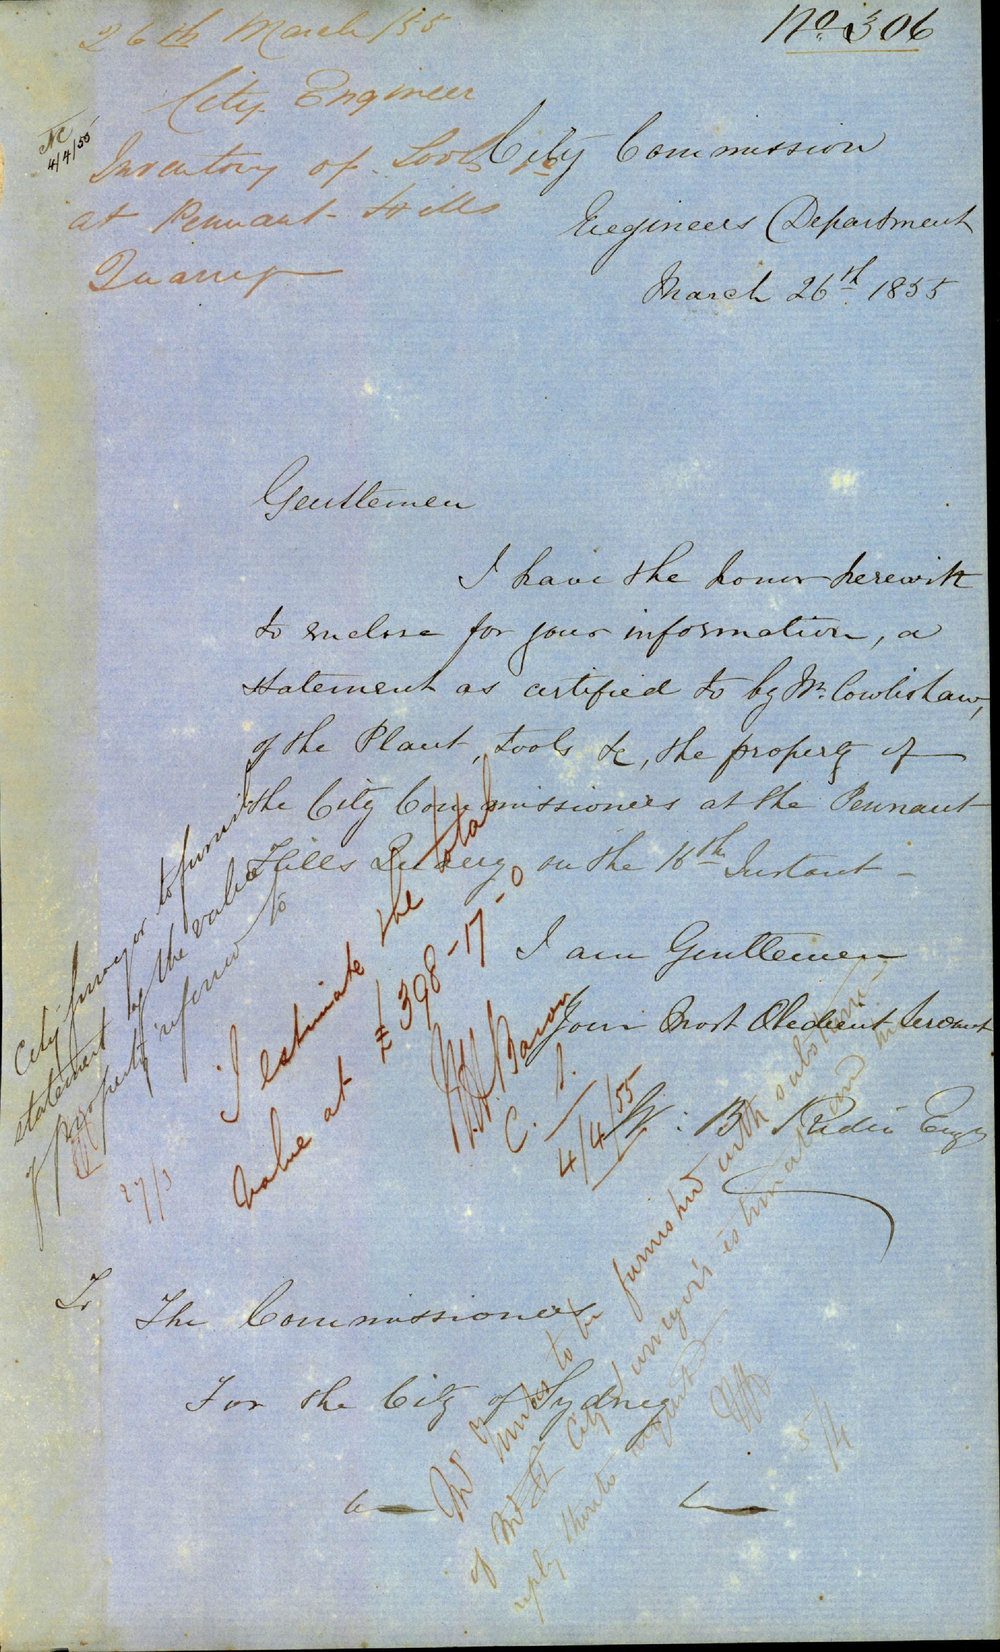 No. 306
26th March /55
City Engineer
Inventory of Tools &c
at Pennant Hills
Quarry
4/4/55
City Commission
Engineers Department
March 26th 1855
Gentlemen
I have the honor herewith
to enclose for your information, a
statement as certified to by Mr. Cowlishaw,
of the Plant, tools &c, the property of
the City Commissioners at the Pennant
Hills Quarry on the 16th Instant -
I am Gentlemen
Your Most Obedient Servant
W: B. Rider Engr
To
The Commissioners
For the City of Sydney
City Surveyor to furnish
statement of the value
of property referred to
27/3
I estimate the total
value at £398-17-0
C. S.
4/4/55
Mr to be furnished with substance
of City Surveyor's estimate and his
reply thereto
5/4